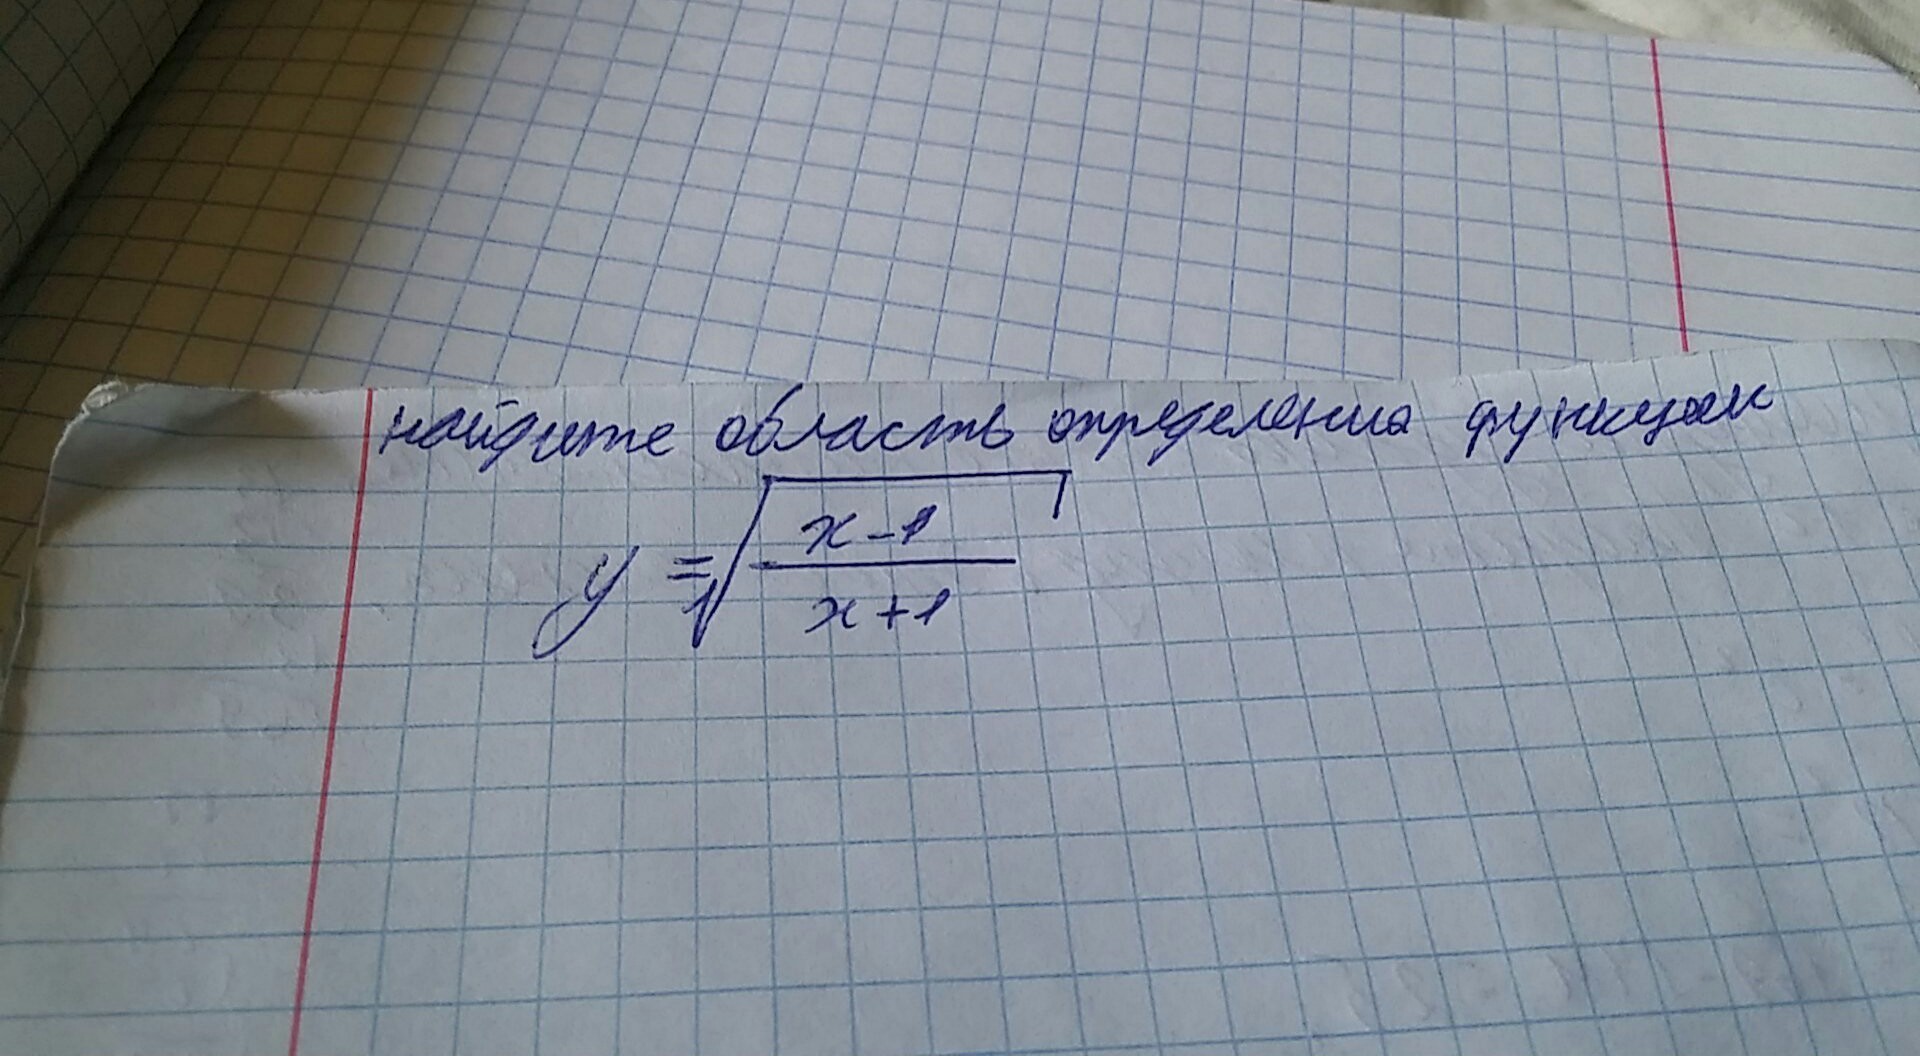 найдите область определения функции
y = √(x-1)/(x+1)